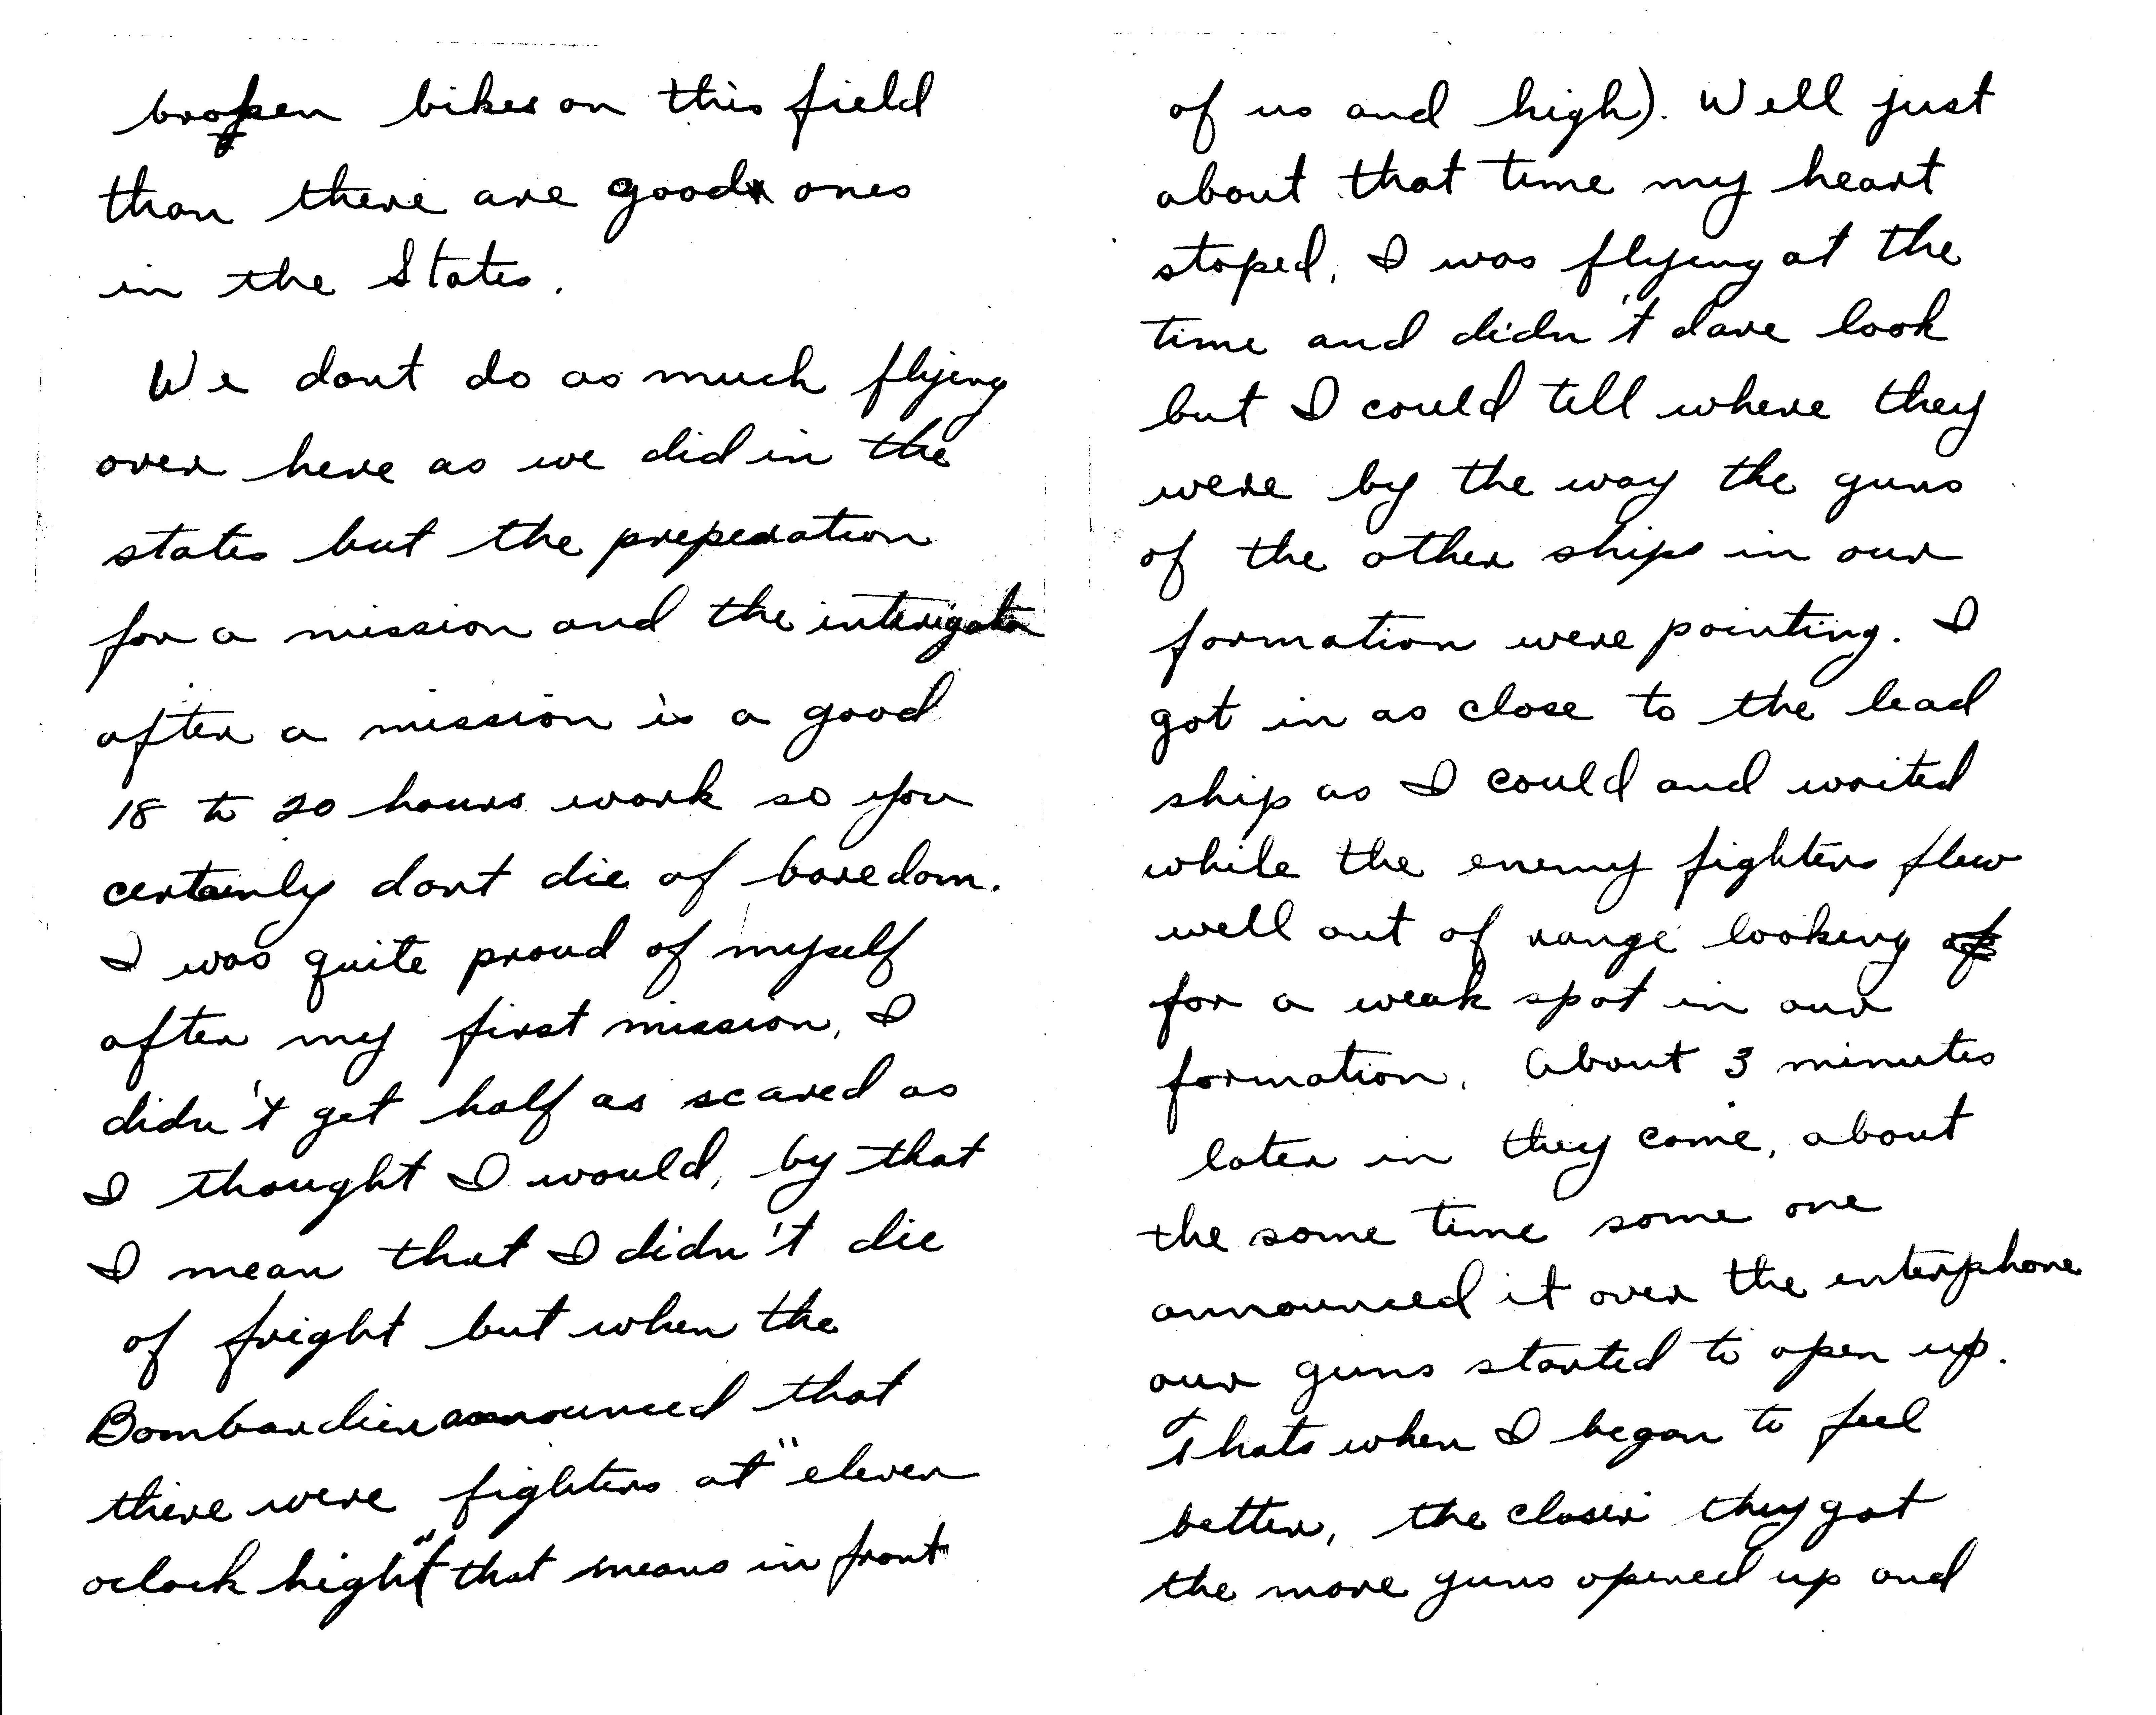 broken bikes on this field
than there are good ones
in the States.
We dont do as much flying
over here as we did in the
states but the preperation
for a mission and the
after a mission is a good
18 to 20 hours work so you
certainly dont die of boredom.
I was quite proud of myself
after my first mission, I
didn't get half as scared as
I thought I would, by that
I mean that I didn't die
of fright but when the
Bombardier announced that
there were fighters at "eleven
oclock hight" (that means in front
of us and high). Well just
about that time my heart
stoped, I was flying at the
time and didn't dare look
but I could tell where they
were by the way the guns
of the other ships in our
formation were pointing. I
got in as close to the lead
ship as I could and waited
while the enemy fighters flew
well out of range looking
for a weak spot in our
formation. About 3 minutes
later in they come, about
the same time some one
announced it over the interphone
our guns started to open up.
Thats when I began to feel
better, the closer they got
the more guns opened up and